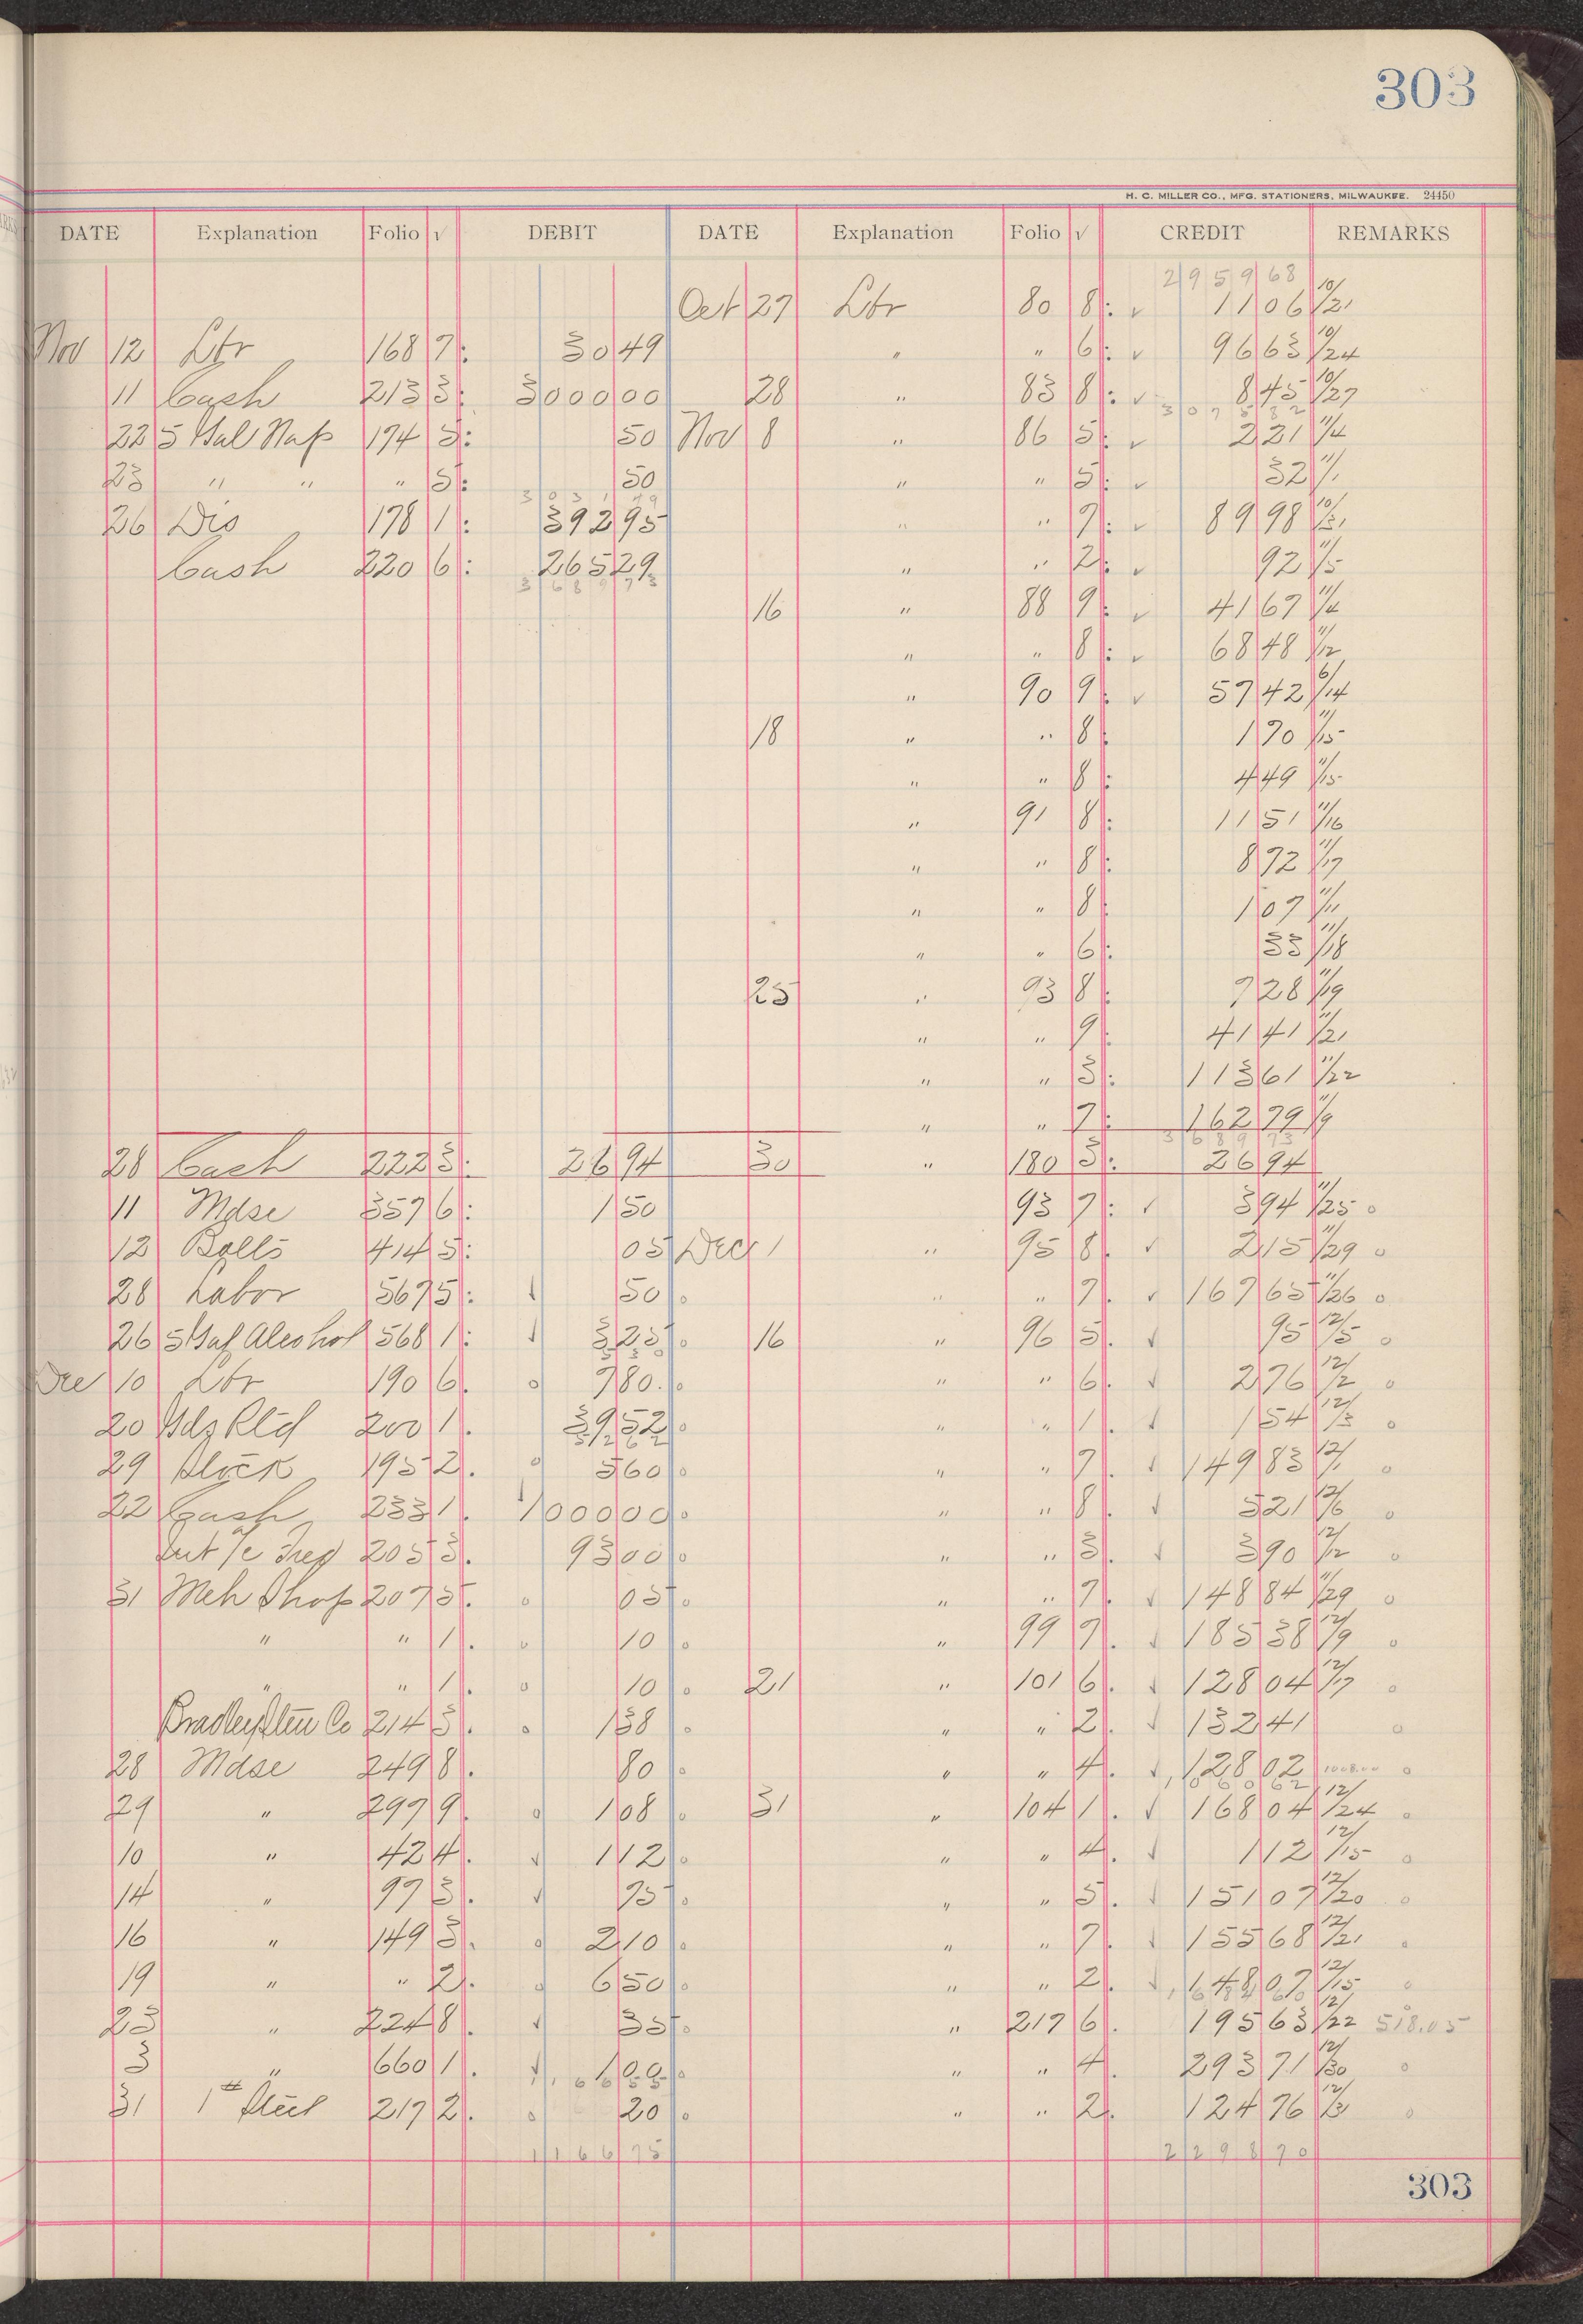 303
H. C. MILLER CO., MFG. STATIONERS, MILWAUKEE. 24450
DATE Explanation Folio √ DEBIT DATE Explanation Folio √ CREDIT REMARKS
2959 68
Oct 27 Lbr 80 8 : √ 11 06 10/21
Nov 12 Lbr 168 7 : 30 49 " " 6 : √ 96 63 10/24
11 Cash 213 3 : 3000 00 28 " 83 8 : √ 8 45 10/27
3075 32
22 5 Gal Nap 174 3 : 50 Nov 8 " 86 5 : √ 2 21 11/4
23 " " " 5 : 50 " " 5 : √ 32 11/1
3031 99
26 Dis 178 1 : 392 95 " " 7 : √ 89 98 10/31
Cash 220 6 : 265 29 " " 2 : √ 92 11/5
3689 73
16 " 88 9 : √ 41 67 11/4
" " 8 : √ 68 48 11/12
" 90 9 : √ 57 42 6/14
18 " " 8 : 1 70 11/15
" " 8 : 4 49 11/15
" 91 8 : 11 51 11/16
" " 8 : 8 72 11/17
" " 8 : 1 07 11/11
" " 6 : 33 11/18
25 " 93 8 : 7 28 11/19
" " 9 : 41 41 11/21
" " 3 : 113 61 11/22
" " 7 : 162 79 11/9
3689 73
28 Cash 222 3 : 26 94 30 " 180 3 : 26 94
11 Mdse 357 6 : 1 50 93 7 : √ 3 94 11/25 o
12 Bolts 414 5 : 05 Dec 1 " 95 8 . √ 2 15 11/29 o
28 Labor 567 5 : √ 50 o " " 7 . √ 167 65 11/26 o
26 5 Gal Alcohol 568 1 : √ 3 25 o 16 " 96 5 . √ 95 12/5 o
Dec 10 Lbr 190 6 . o 7 80 . o " " 6 . √ 2 76 12/2 o
20 Bdg Rld 200 1 . 39 52 o " " 1 . √ 1 54 12/3 o
29 Stock 195 2 . o 5 60 o " " 7 . √ 149 83 12/1 o
22 Cash 233 1 . √ 1000 00 o " " 8 . √ 5 21 12/6 o
Int /c Treg 205 3 . 93 00 o " " 3 . √ 3 90 12/12 o
31 Meh Shop 207 5 . o 05 o " " 7 . √ 148 84 11/29 o
" " 1 . o 10 o " 99 7 . √ 185 38 12/9 o
" " 1 . o 10 o 21 " 101 6 . √ 128 04 12/17 o
Bradley Sten Co 214 3 . o 1 38 o " " 2 . √ 132 41 o
28 Mdse 249 8 . 80 o " " 4 . √ 128 02 o
29 " 297 9 . o 1 08 o 31 " 104 1 . √ 168 04 12/24 o
10 " 42 4 . √ 1 12 o " " 4 . √ 1 12 12/15 o
14 " 97 3 . √ 75 o " " 5 . √ 151 07 12/20 o
16 " 149 3 . o 2 10 o " " 7 . √ 155 68 12/21 o
19 " " 2 . o 6 50 o " " 2 . √ 148 07 12/15 o
23 " 224 8 . √ 35 o " 217 6 . 195 63 12/22 518.05
3 " 660 1 . √ 1 00 o " " 4 . 293 71 12/30 o
31 1 " Steel 217 2 . o 20 o " " 2 . 124 76 12/3 o
1166 75 2298 70
303